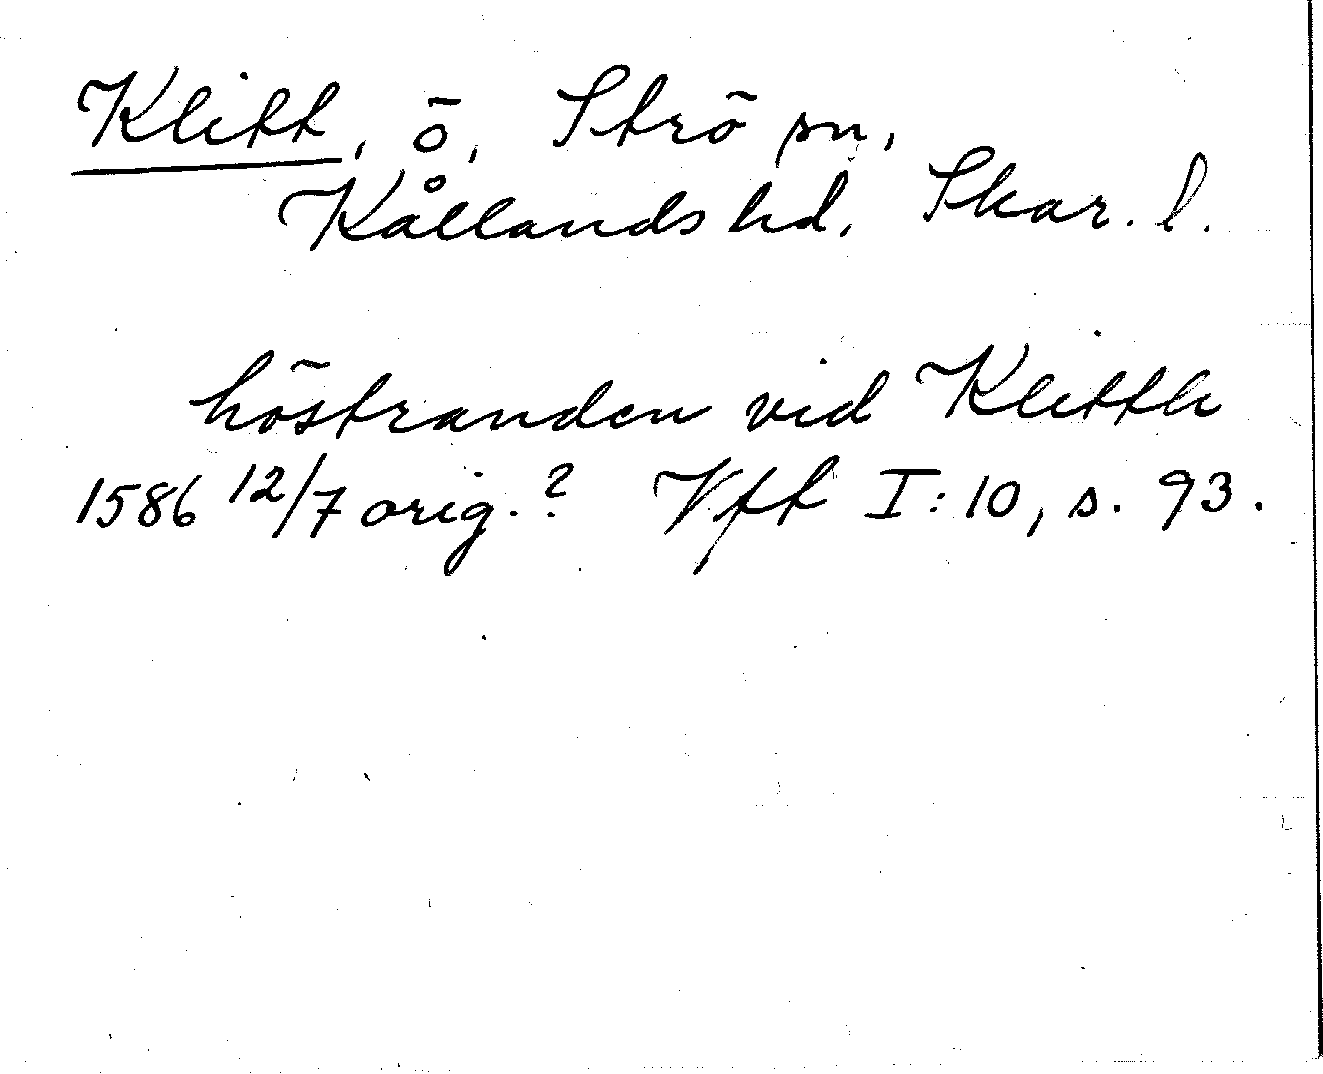 Klitt, ö, Strö sn,
Kållands hd, Skar. l.
höstranden vid Klitth
1586 12/7 orig.? Vft I:10, s. 93.